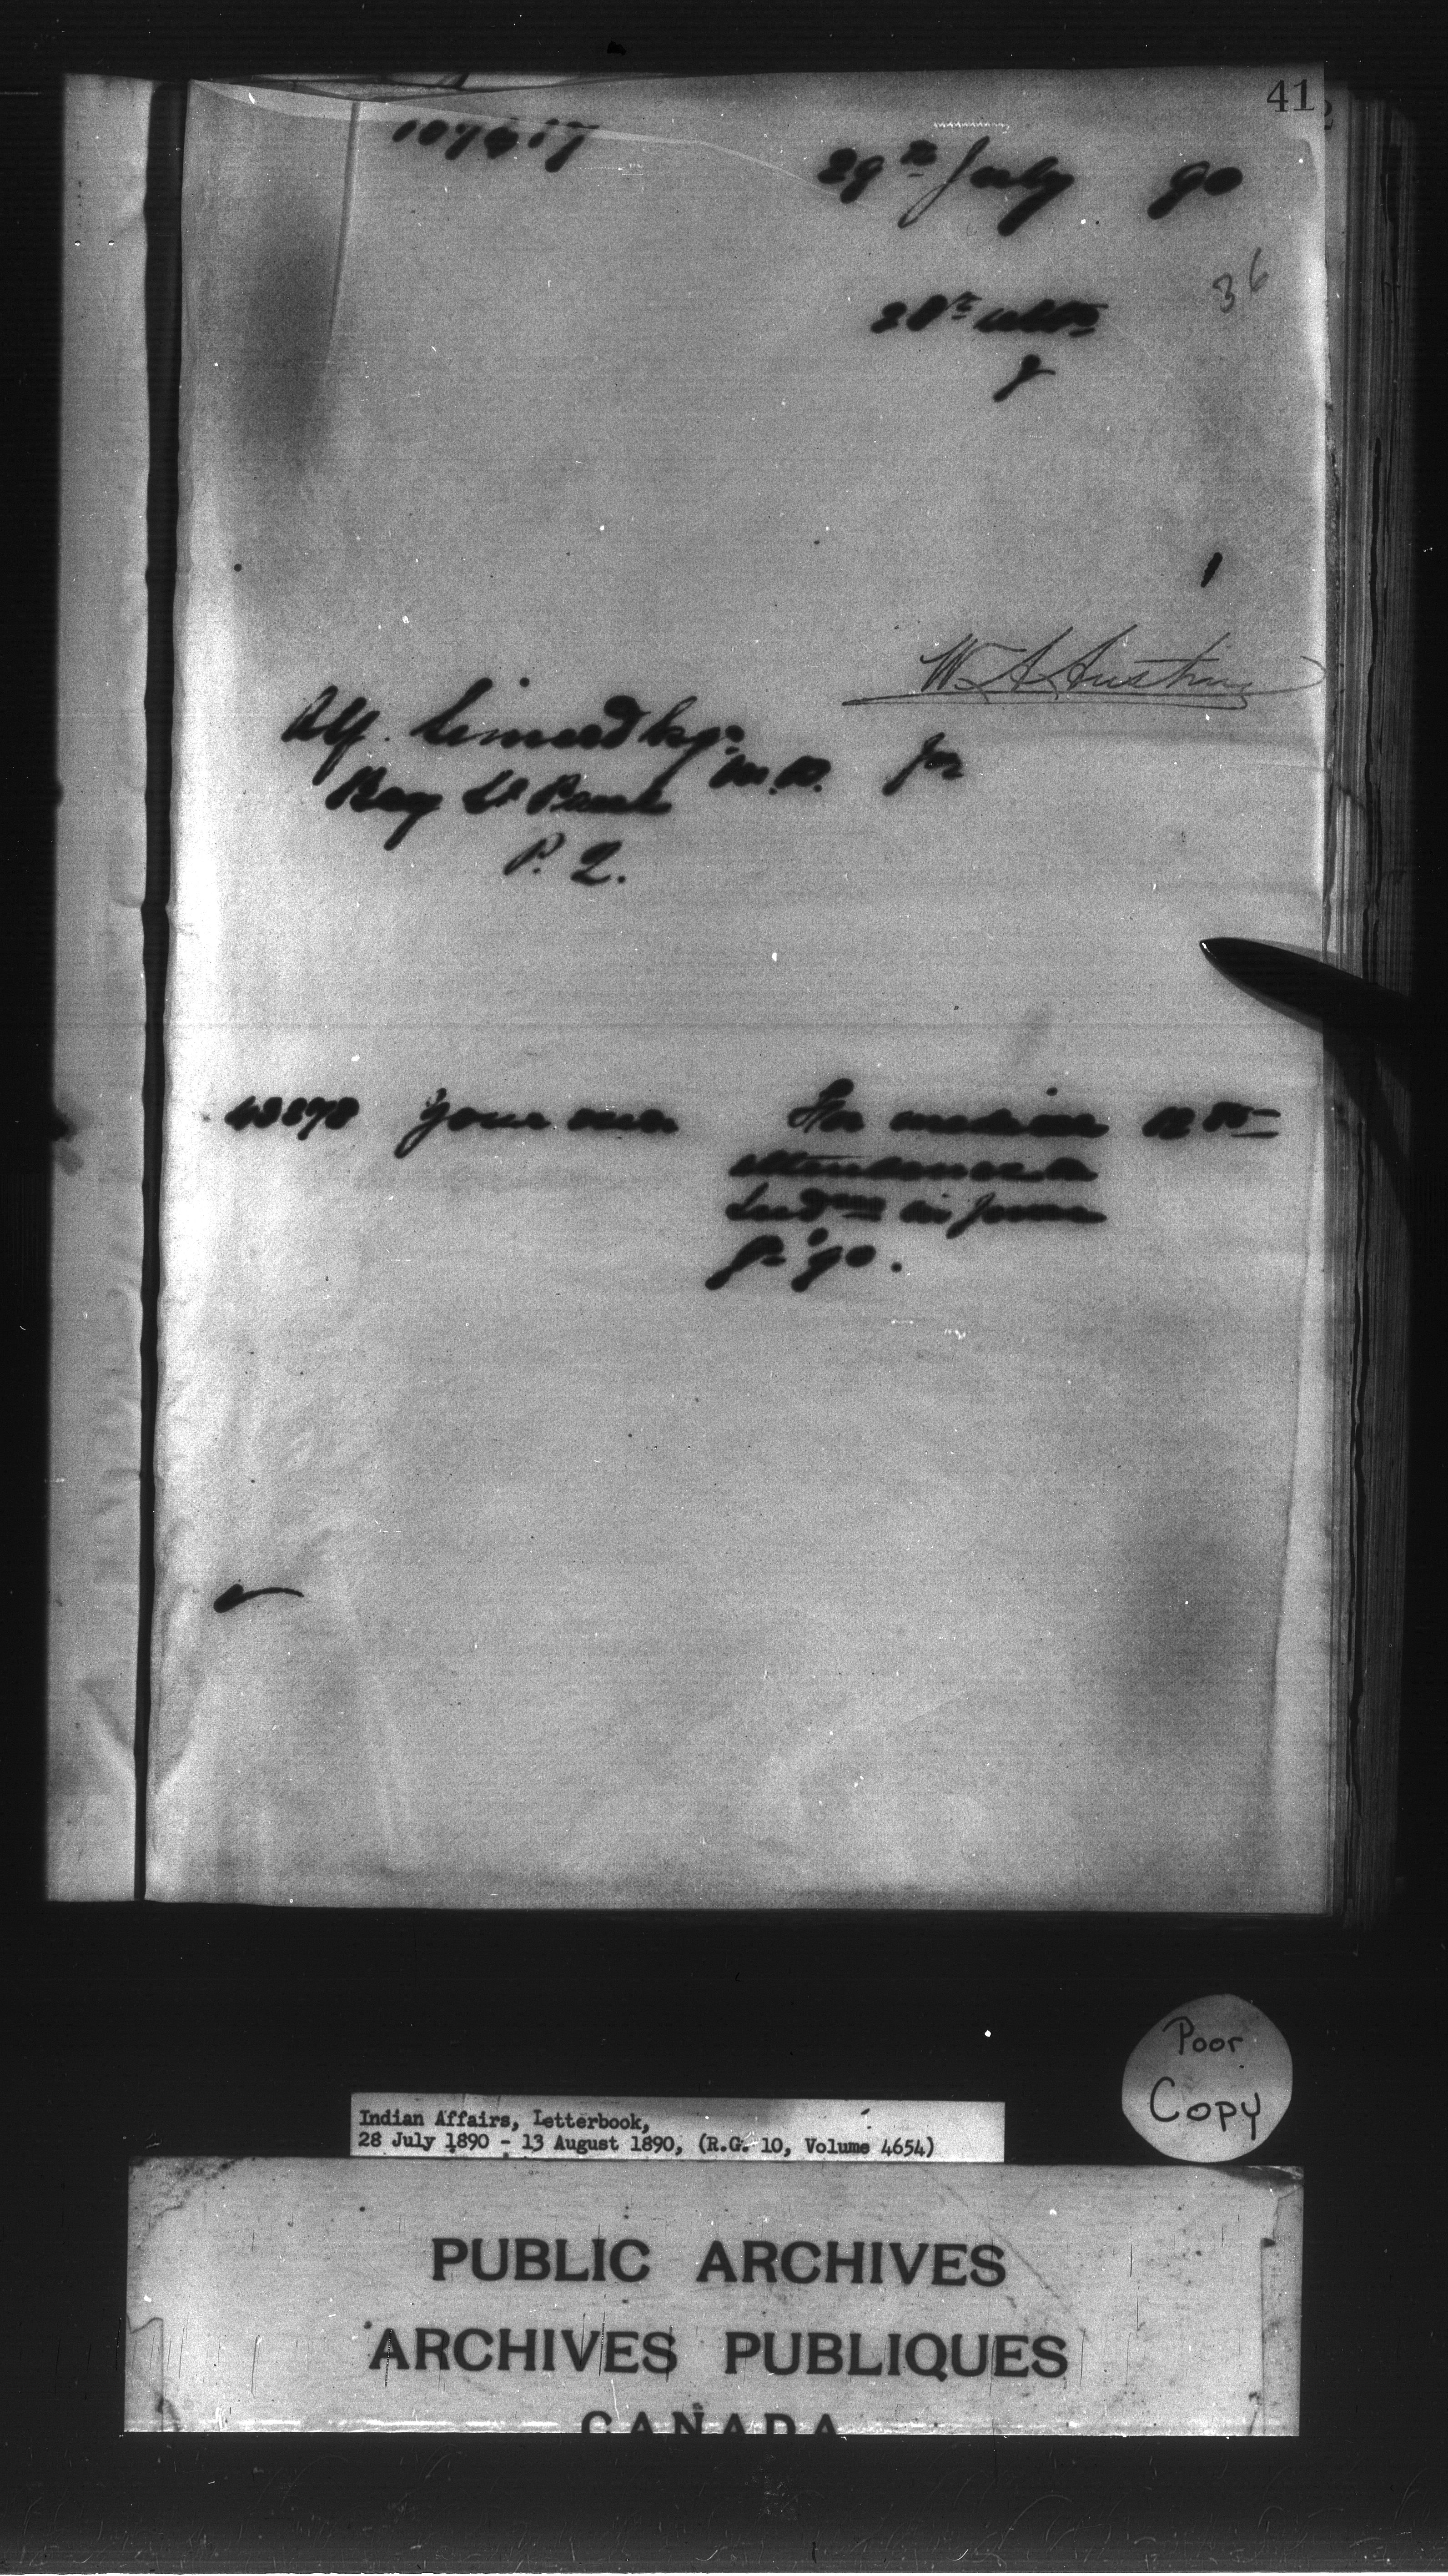 41
29th July 90
36
28th ulto
W. A. Austin
Alf. Simard Esqr.
M.D. for
Bay St Paul
P. Q.
Your own For medical 12
attendance to
Indns in June
90.
Poor
Copy
Indian Affairs, Letterbook,
28 July 1890 - 13 August 1890, (R.G. 10, Volume 4654)
PUBLIC ARCHIVES
ARCHIVES PUBLIQUES
CANADA